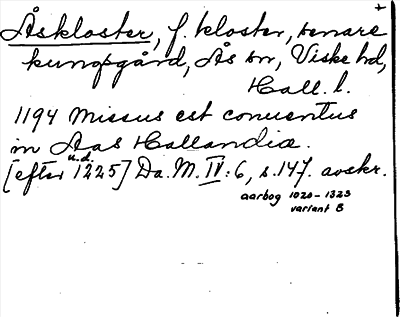 +
Åskloster, f. kloster, senare
kungsgård, Ås sn, Viske hd,
Hall. l.
1194 missus est conuentus
in Aas Hallandiæ.
u.d.
[efter 1225] Da. M. IV: 6, s. 147. avskr.
aarbog 1020-1323
variant B